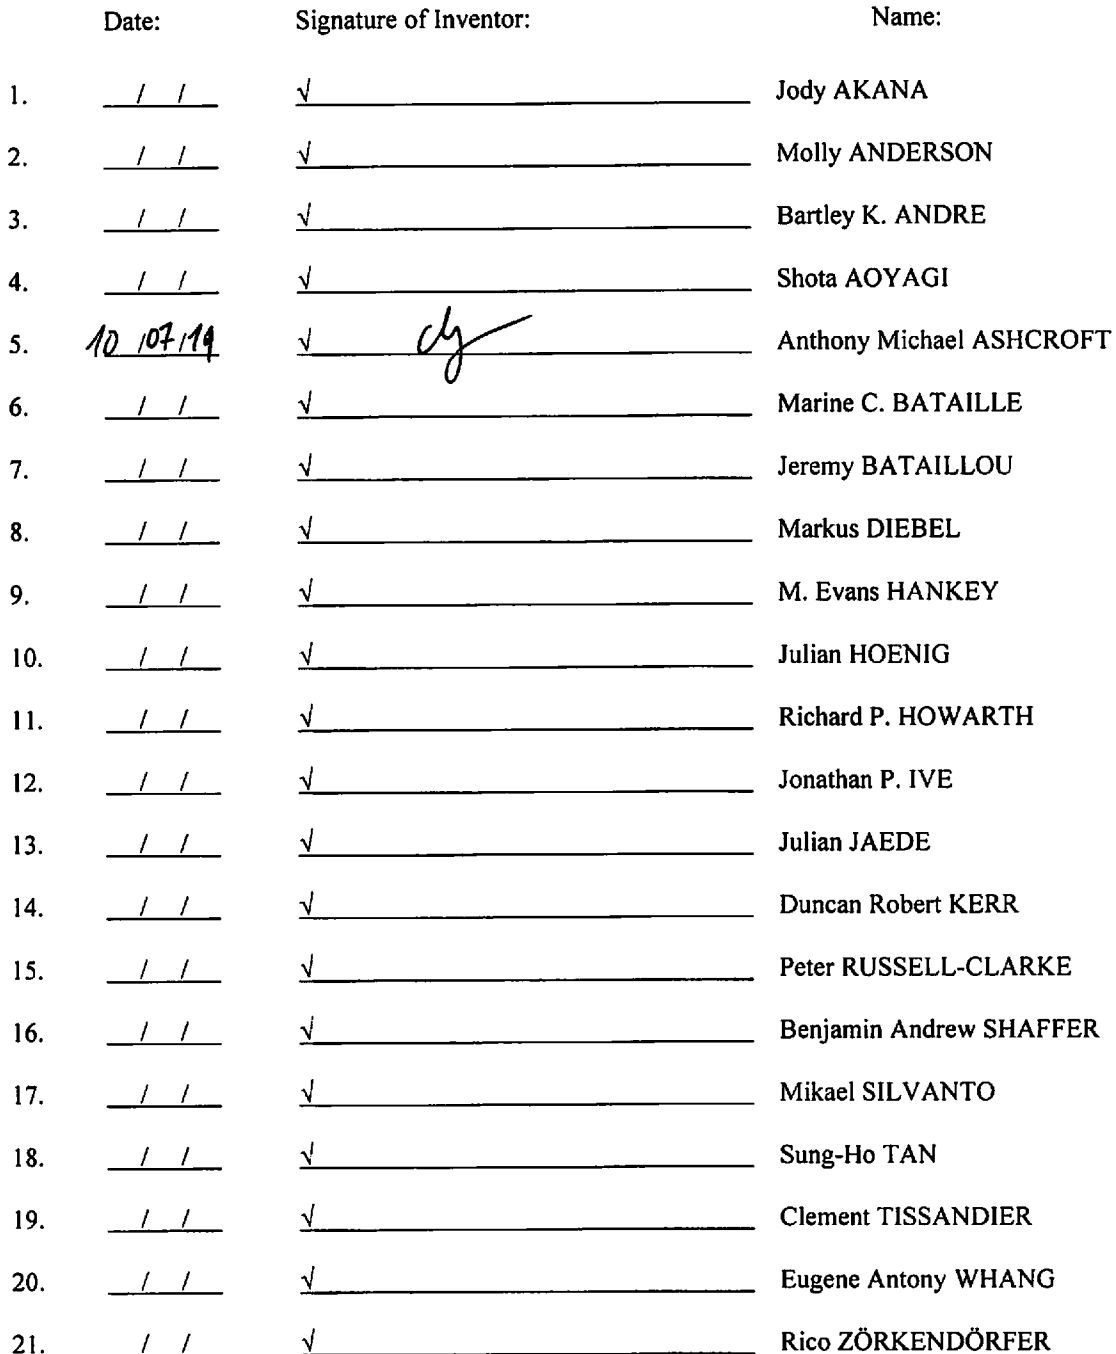 Date: Signature of Inventor: Name:
1. / / √ Jody AKANA
2. / / √ Molly ANDERSON
3. / / √ Bartley K. ANDRE
4. / / √ Shota AOYAGI
5. 10 /07/19 √ Anthony Michael ASHCROFT
6. / / √ Marine C. BATAILLE
7. / / √ Jeremy BATAILLOU
8. / / √ Markus DIEBEL
9. / / √ M. Evans HANKEY
10. / / √ Julian HOENIG
11. / / √ Richard P. HOWARTH
12. / / √ Jonathan P. IVE
13. / / √ Julian JAEDE
14. / / √ Duncan Robert KERR
15. / / √ Peter RUSSELL-CLARKE
16. / / √ Benjamin Andrew SHAFFER
17. / / √ Mikael SILVANTO
18. / / √ Sung-Ho TAN
19. / / √ Clement TISSANDIER
20. / / √ Eugene Antony WHANG
21. / / √ Rico ZÖRKENDÖRFER